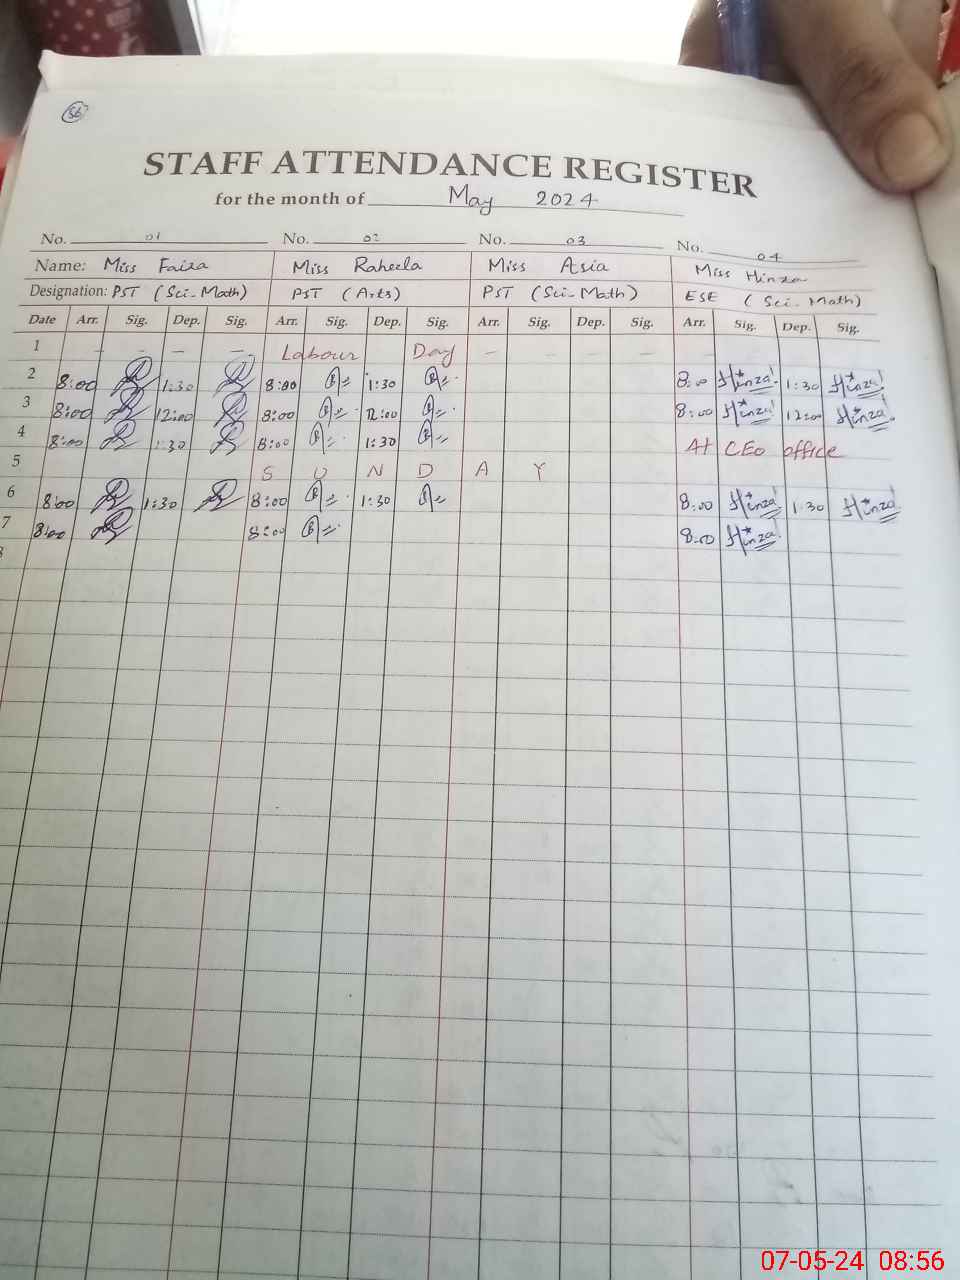 56
STAFF ATTENDANCE REGISTER
for the month of May 2024
No. 01 No. 02 No. 03 No. 04
Name: Miss Faiza Miss Raheela Miss Asia Miss Hinza
Designation: PST (Sci-Math) PST (Arts) PST (Sci-Math) ESE (Sci-Math)
Date Arr. Sig. Dep. Sig. Arr. Sig. Dep. Sig. Arr. Sig. Dep. Sig. Arr. Sig. Dep. Sig.
1 - - - - Labour Day - - - - -
2 8:00 1:30 8:00 1:30 8:00 Hinza 1:30 Hinza
3 8:00 12:00 8:00 12:00 8:00 Hinza 12:00 Hinza
4 8:00 1:30 8:00 1:30 At CEO office
5 S U N D A Y
6 8:00 1:30 8:00 1:30 8:00 Hinza 1:30 Hinza
7 8:00 8:00 8:00 Hinza
8
07-05-24 08:56